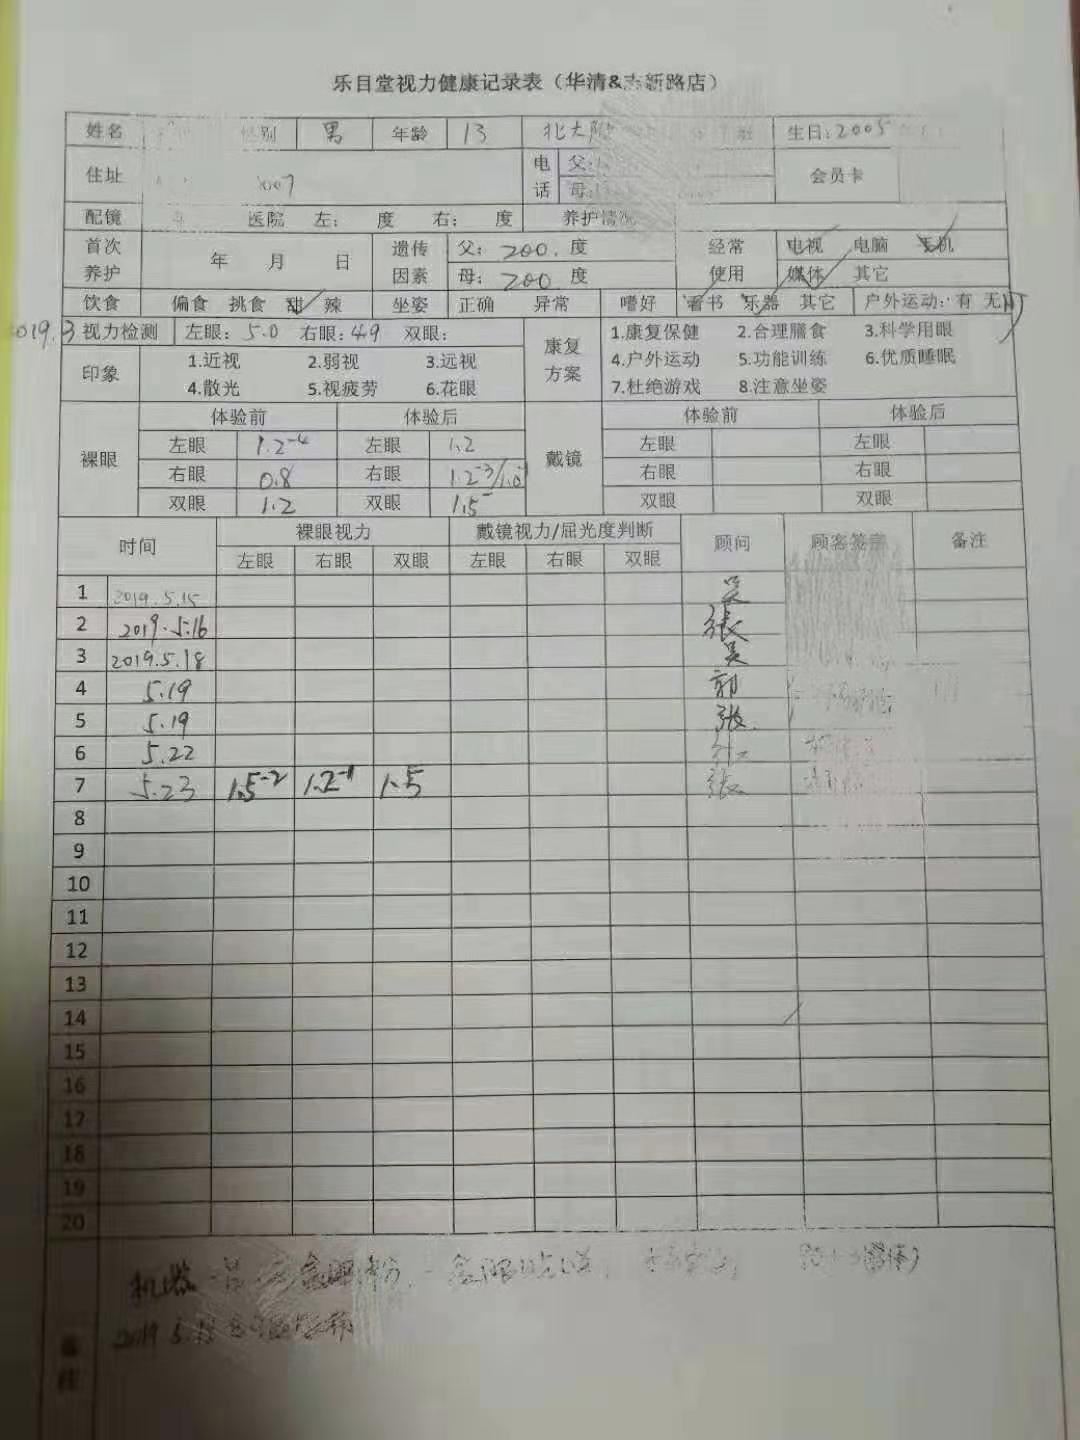 乐目堂视力健康记录表（华清&志新路店）
姓名 性别 男 年龄 13 北大附 生日:2005
住址 电话 父: 母: 会员卡
配镜 医院 左: 度 右: 度 养护情况
首次养护 年 月 日 遗传因素 父: 200. 度 母: 200 度 经常使用 电视 电脑 手机 媒体 其它
饮食 偏食 挑食 甜 辣 坐姿 正确 异常 嗜好 看书 乐器 其它 户外运动: 有 无
2019.3 视力检测 左眼: 5.0 右眼: 4.9 双眼:
印象 1.近视 2.弱视 3.远视
4.散光 5.视疲劳 6.花眼
康复方案 1.康复保健 2.合理膳食 3.科学用眼
4.户外运动 5.功能训练 6.优质睡眠
7.杜绝游戏 8.注意坐姿
裸眼 体验前 体验后 戴镜 体验前 体验后
左眼 1.2⁻⁴ 左眼 1.2 左眼 左眼
右眼 0.8 右眼 1.2⁻³/1.0 右眼 右眼
双眼 1.2 双眼 1.5⁻ 双眼 双眼
时间 裸眼视力 戴镜视力/屈光度判断 顾问 顾客签字 备注
左眼 右眼 双眼 左眼 右眼 双眼
1 2019.5.15 吴
2 2019.5.16 张
3 2019.5.18 吴
4 5.19 郭
5 5.19 张
6 5.22
7 5.23 1.5⁻² 1.2⁻¹ 1.5 张
8
9
10
11
12
13
14
15
16
17
18
19
20
备注 机器
2019 5.